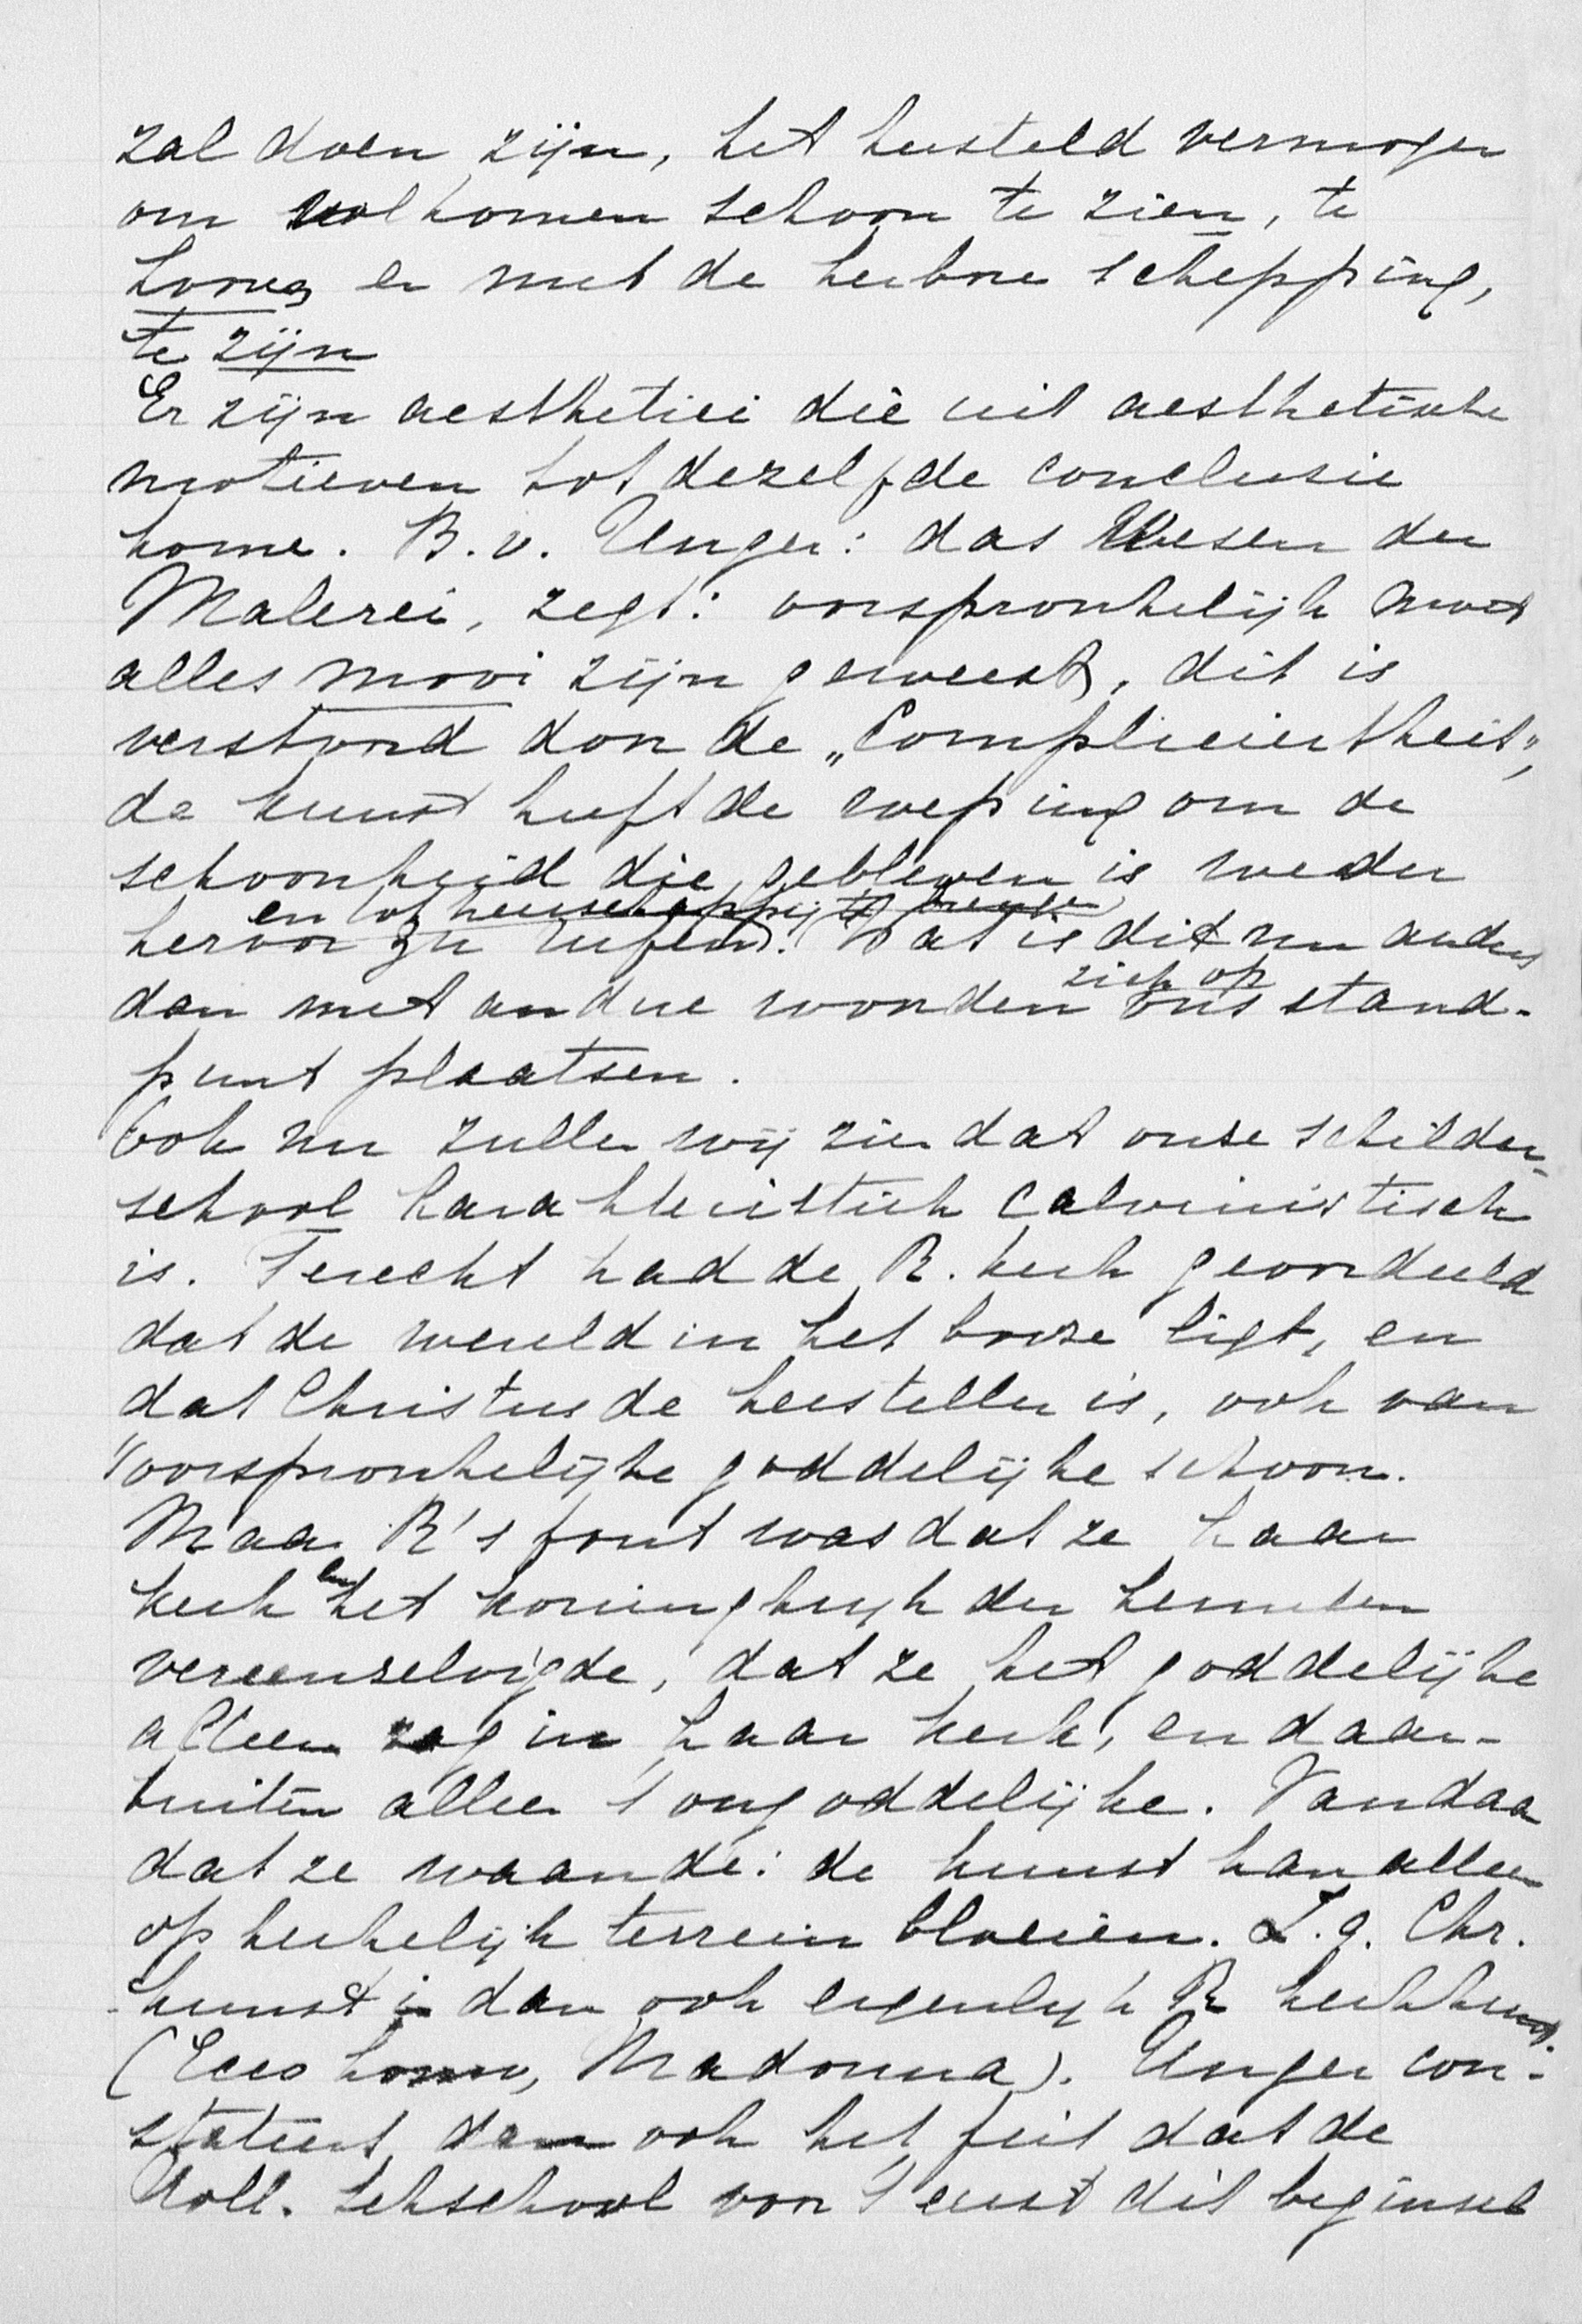 zal doen zijn, het hersteld vermogen
om volkomen schoon te zien, te
hooren en met de herbore schepping,
te zijn
Er zijn aesthetici die uit aesthetische
motieven tot dezelfde conclusie
kome. B.v. Unger: das Wesen der
Malerei, zegt: oorspronkelijk moet
alles mooi zijn geweest, dit is
verstoord door de „Compliciertheit",
de kunst heeft de roeping om de
schoonheid die gebleven is weder
en tot heerschappij te brengen
hervor zu rufen. Wat is dit nu anders
zich op
dan met andere woorden ons stand-
punt plaatsen.
Ook nu zullen wij zien dat onze schilder-
school karakteristiek Calvinistisch
is. Terecht had de R. kerk geoordeeld
dat de wereld in het booze ligt, en
dat Christus de hersteller is, ook van
't oorspronkelijke goddelijke schoon.
Maar R's fout was dat ze haar
kerk en het koninghrijk der hemelen
vereenzelvigde, dat ze het goddelijke
alleen zag in haar kerk, en daar-
buiten alleen 't ongoddelijke. Vandaar
dat ze waande: de kunst kan alleen
op kerkelijk terrein bloeien. Z.g. Chr.
kunst is dan ook eigenlijk R kerkkunst
(Ecce homo, Madonna). Unger con-
stateert dan ook het feit dat de
Holl. Schschool voor 't eerst dit beginsel